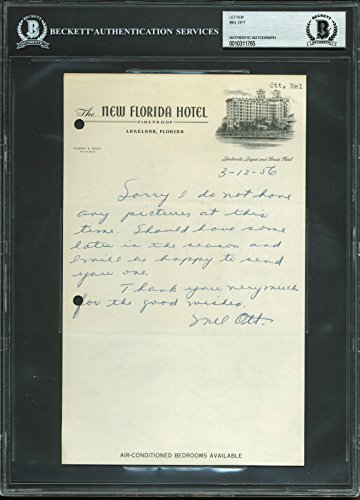 BECKETT AUTHENTICATION SERVICES
LETTER
MEL OTT
AUTHENTIC AUTOGRAPH
0010311765
Ott, Mel
The NEW FLORIDA HOTEL
FIREPROOF
LAKELAND, FLORIDA
Lakeland's Largest and Finest Hotel
3-12-56
Sorry I do not have
any pictures at this
time. Should have some
later in the season and
I will be happy to send
you one.
Thank you very much
for the good wishes.
Mel Ott.
AIR-CONDITIONED BEDROOMS AVAILABLE